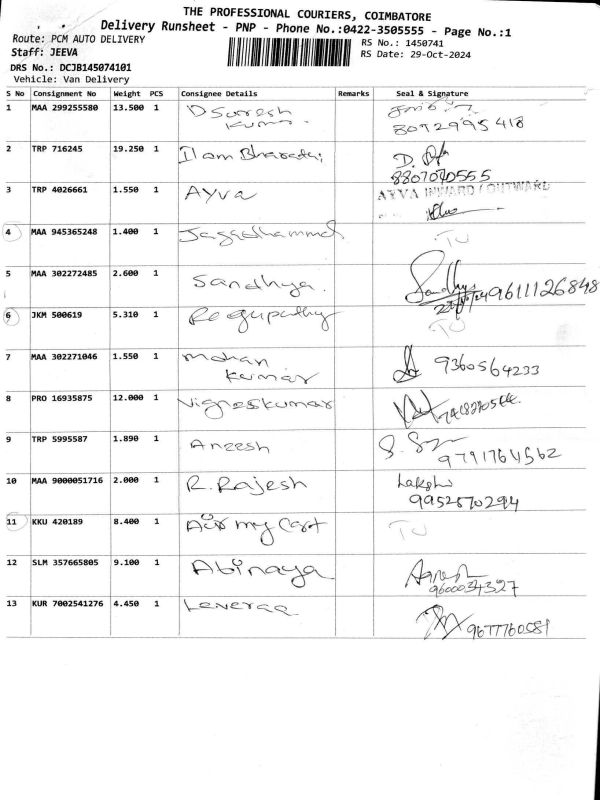 THE PROFESSIONAL COURIERS, COIMBATORE
Delivery Runsheet - PNP - Phone No.:0422-3505555 - Page No.:1
Route: PCM AUTO DELIVERY
RS No.: 1450741
Staff: JEEVA
RS Date: 29-Oct-2024
DRS No.: DCJB145074101
Vehicle: Van Delivery
S No Consignment No Weight PCS Consignee Details Remarks Seal & Signature
1 MAA 299255580 13.500 1 D Suresh
Kumar 8072995418
2 TRP 716245 19.250 1 Ilam Bharathi D.
8807070555
3 TRP 4026661 1.550 1 Ayva AYVA INWARD / OUTWARD
4 MAA 945365248 1.400 1
5 MAA 302272485 2.600 1 Sandhya. Sandhya 9611126848
6 JKM 500619 5.310 1 Regupathy
7 MAA 302271046 1.550 1 Mohan
Kumar 9360564233
8 PRO 16935875 12.000 1 Vigneskumar
9 TRP 5995587 1.890 1 Aneesh
10 MAA 9000051716 2.000 1 R. Rajesh
9952570294
11 KKU 420189 8.400 1 Air my Cart
12 SLM 357665805 9.100 1 Abinaya
9600034327
13 KUR 7002541276 4.450 1 9677760581